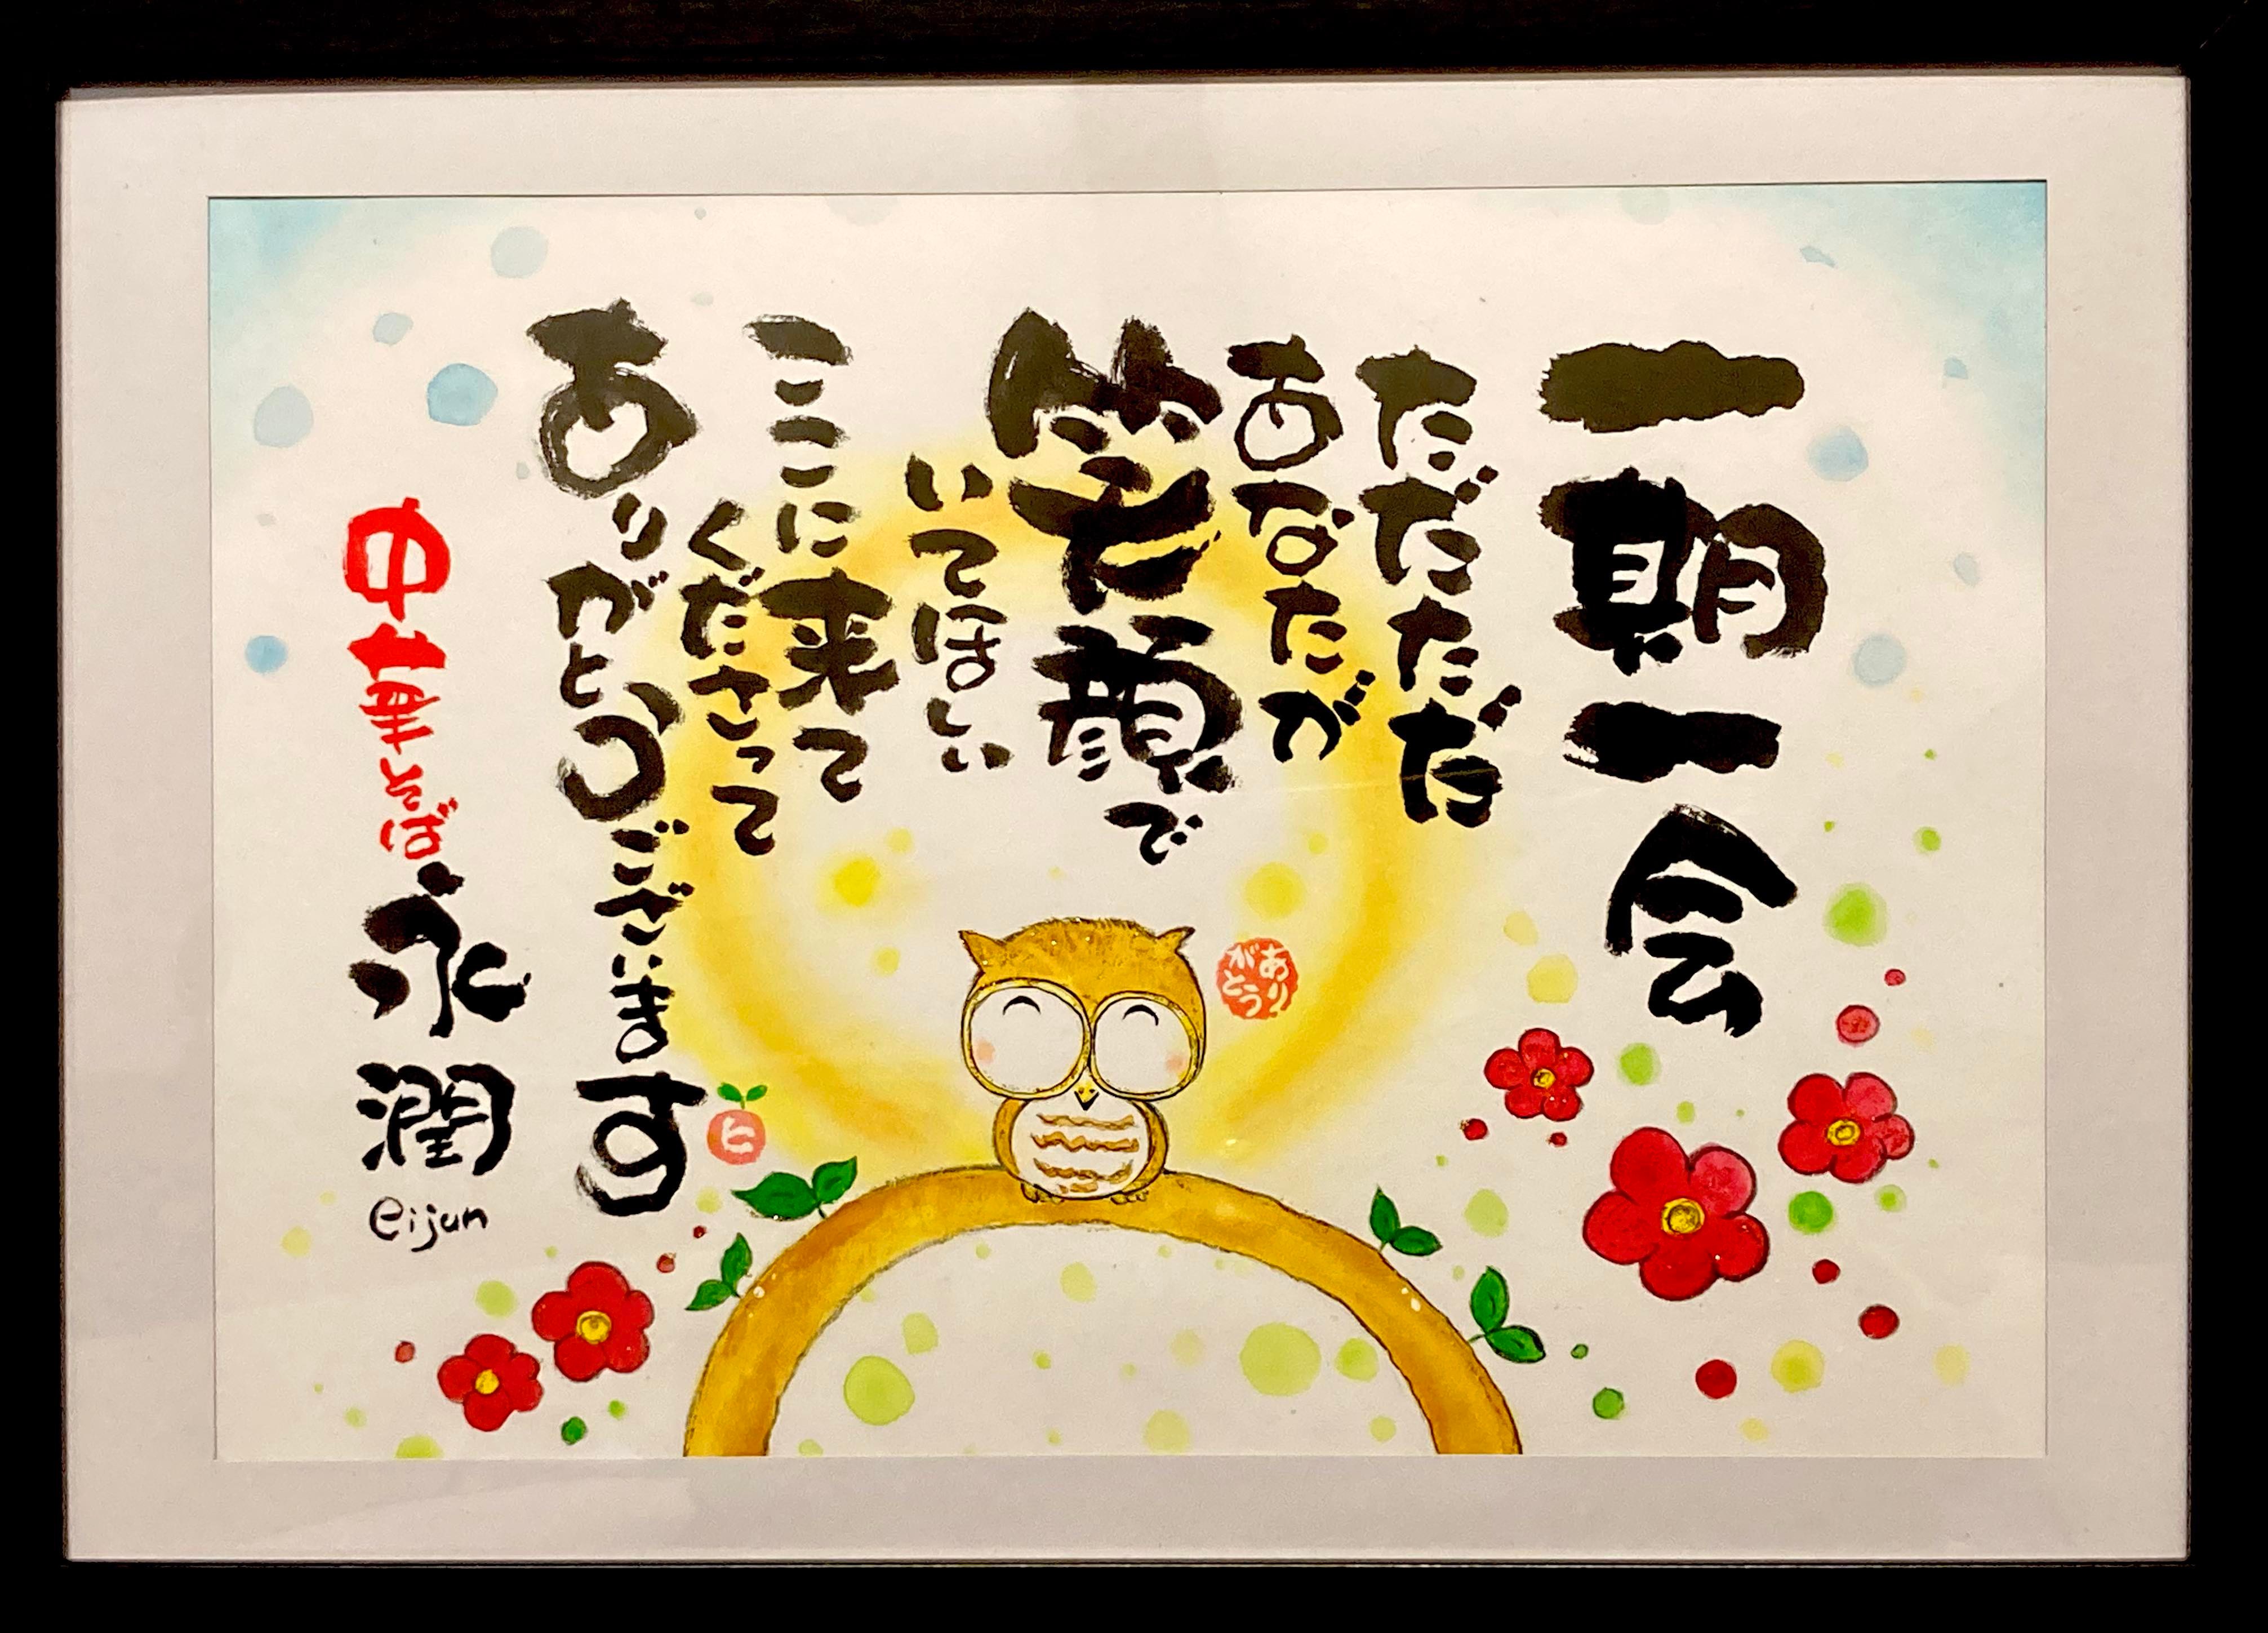 一期一会
ただただ
あなたが
笑顔で
いてほしい
ここに来て
くださって
ありがとうございます
中華そば永潤
eijun
ありがとう